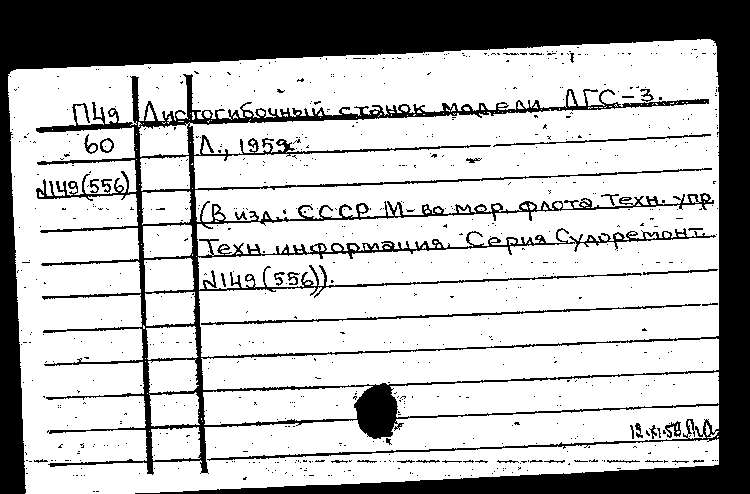 П49 Листогибочный станок модели ЛГС-3.
60 Л., 1959.
№149(556)
(В изд.: СССР М-во мор. флота. Техн. упр.
Техн. информация. Серия Судоремонт.
№149(556)).
12.XI.59.